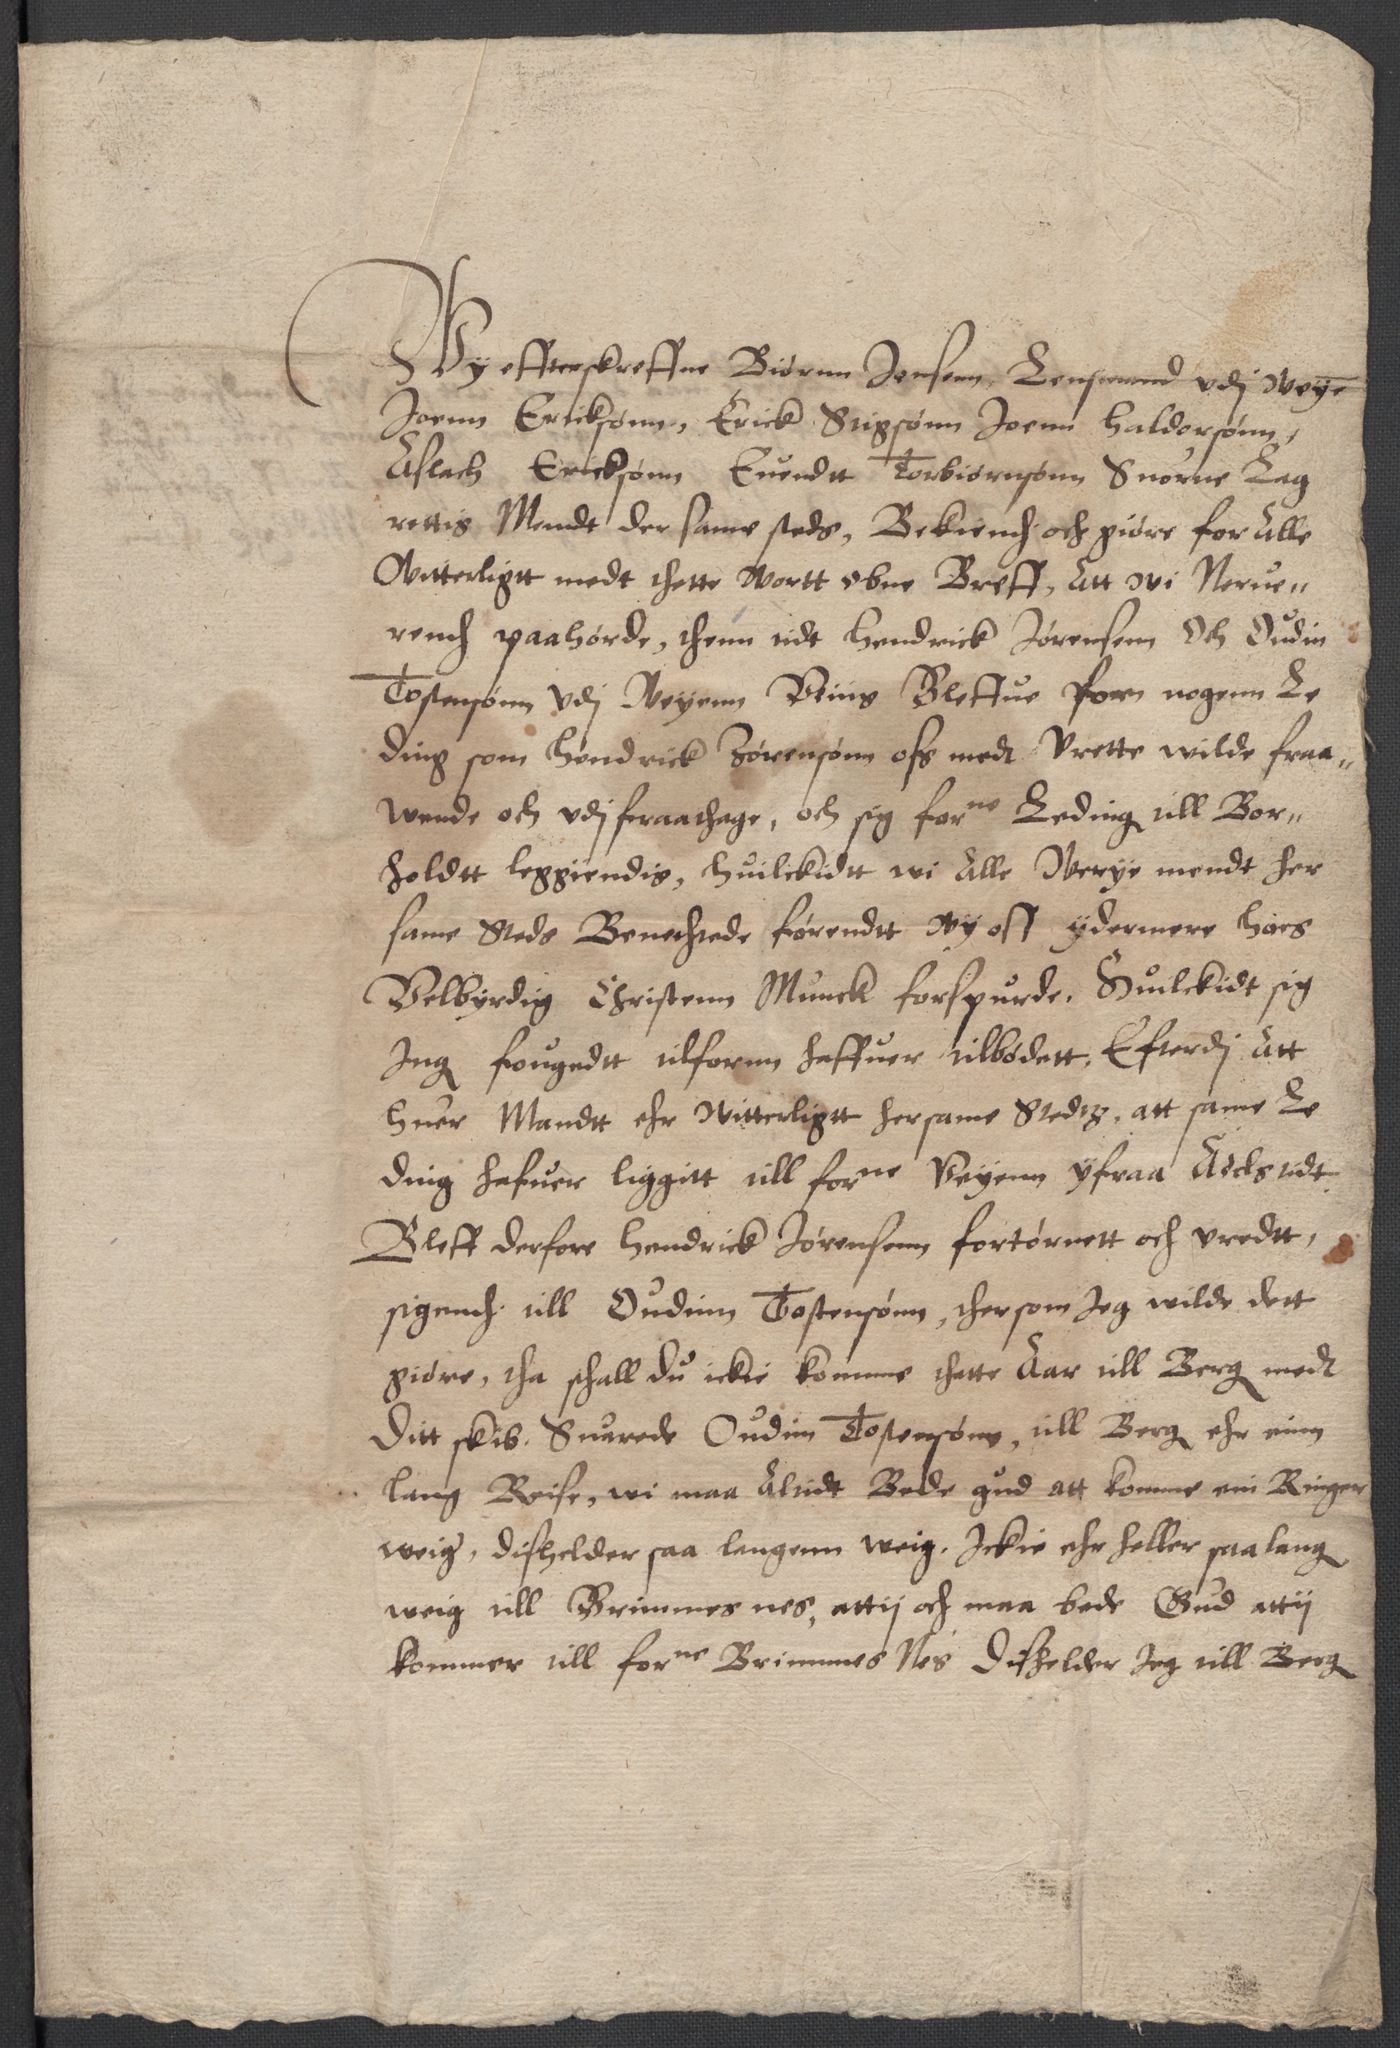 Wy effterskreffne Biørnn Jensenn, Lensmand vdj Weye
Joenn Ericksønn, Erick Stigsønn Joenn Haldorsønn,
Aslach Ericksønn Euendtt Torbiørnsønn Suorne Lag
rettis Mendt der same steds, Bekiende och giøre for Alle
Witterligtt medt thette Wortt obne Breff, Att wi Nerue„
rende paahørde, thenn tidt Hendrick Jørensenn Och Oudin
Tostensønn vdj Weyenn Blefue forn nogenn Le
ding som Hendrick Jørensønn oss medt Vrette wilde fraa„
wende och vdj fraathage, och sig forne Leding till Bor„
holdtt leggiendis, Huilckidtt wi Alle Werye mendt her
same Steds Benechtede førendtt Wy oss ydermere hoes
Velbyrdig Christenn Munck forspurde. Huilckidt sig
Jng fougedtt tilfornn haffuer tilbødett, Efterdj Att
huer Mandtt ehr Witterligtt hersame Stedtz, att same Le
ding hafuer liggitt till forne Veyenn yfraa Aolds tidt
Bleff derfore Hendrick Jørensenn fortørnett och vredtt,
sigende till Oudinn Tostensønn, thersom Jeg wilde dett
giøre, tha schall du ickie komme thette Aar till Berg medt
Ditt skib. Suarede Oudinn Tostensønn, till Berg ehr einn
lang Reise, wi maa Altidt Bede gud att komme ein Ringer
weig, disheldér saa langenn weig. Ickie ehr heller saa lang
weig till Brimmes nes, attij och maa bede Gud attij
kommer till forne Brimmes Nes Dishelder Jeg till Berg